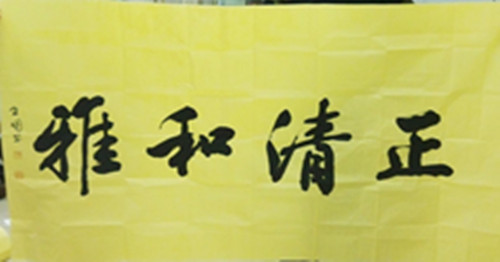 正清和雅